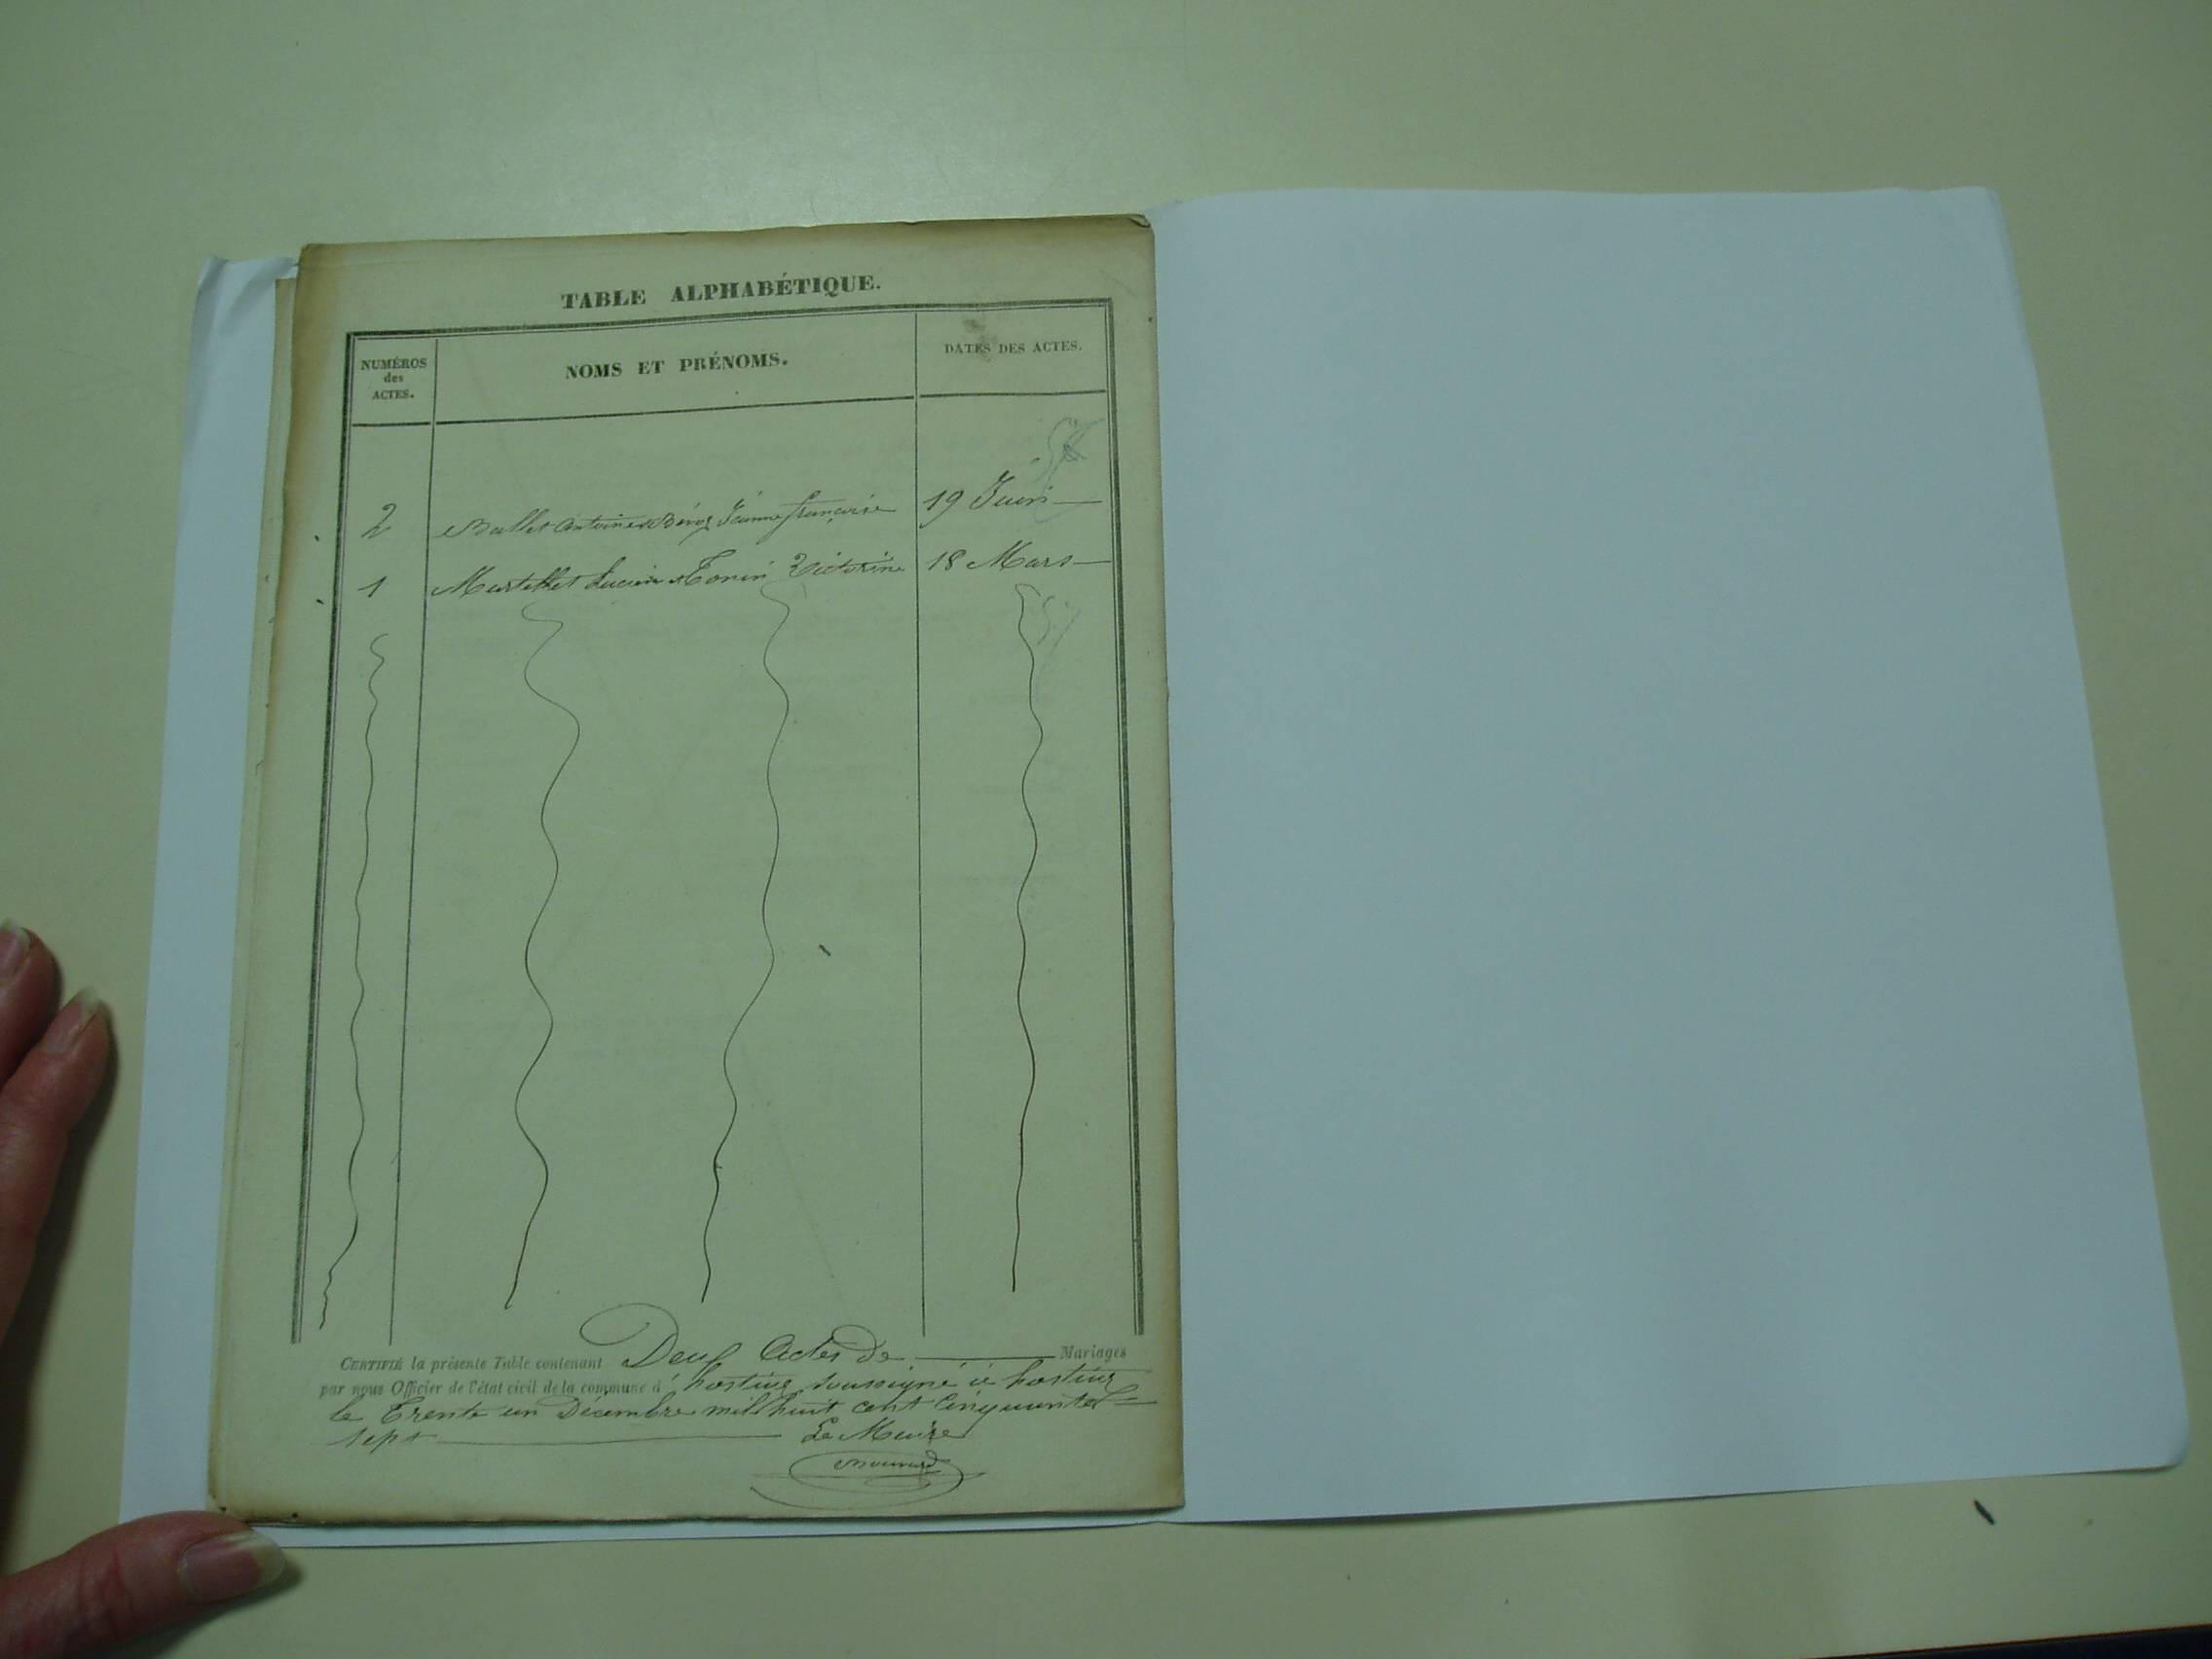 TABLE ALPHABÉTIQUE.
NUMÉROS des ACTES.
NOMS ET PRÉNOMS.
DATES DES ACTES.
2 Ballet Antoine & Jeanne françoise 19 Juin
1 Martellet Lucien & Tonin Victorine 18 Mars
CERTIFIÉ la présente Table contenant Deux Actes de Mariages
par nous Officier de l'état civil de la commune d' hostiaz soussigné à hostiaz
le Trente un Décembre mil huit cent Cinquante
sept Le Maire